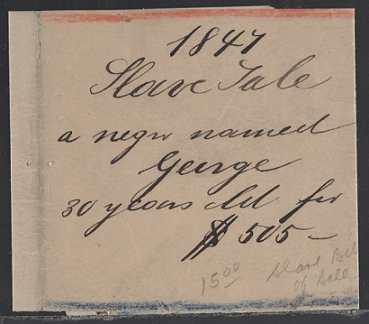 1847
Slave Sale
a negro named
George
30 years old for
$505–
15.00
Slave Bill
of Sale